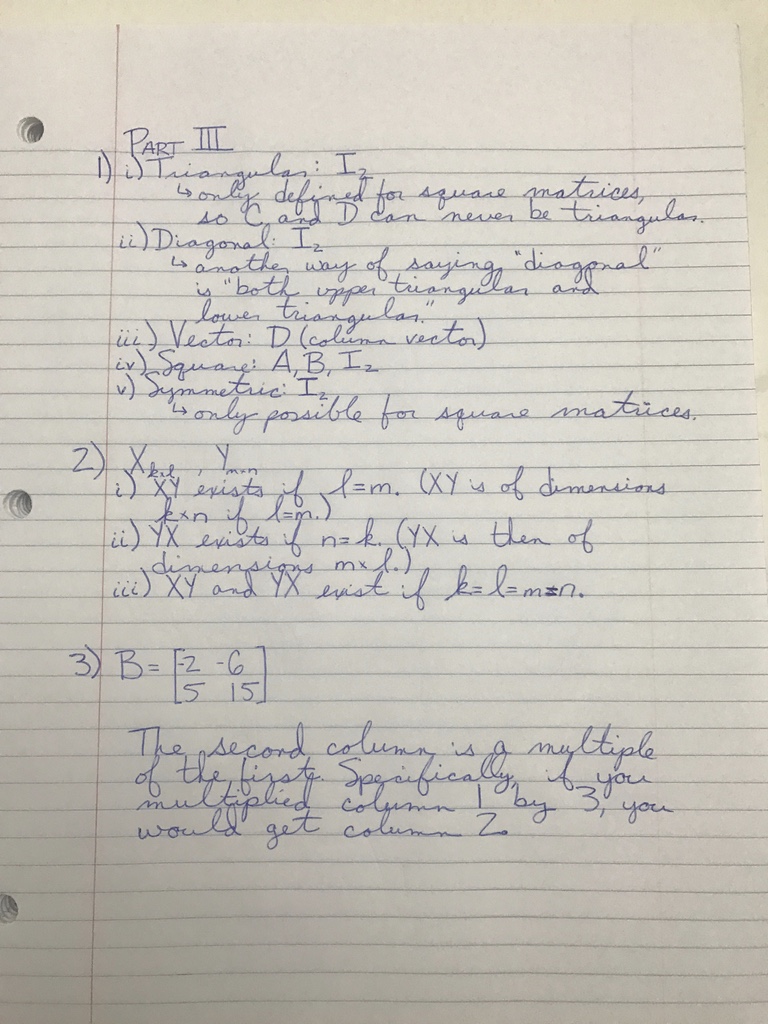 PART III
1) i) Triangular: I₂
↳ only defined for square matrices,
so C and D can never be triangular.
ii) Diagonal: I₂
↳ another way of saying "diagonal"
is "both upper triangular and
lower triangular."
iii) Vector: D (column vector)
iv) Square: A, B, I₂
v) Symmetric: I₂
↳ only possible for square matrices.
2) Xₖₓₗ , Yₘₓₙ
i) XY exists if l=m. (XY is of dimensions
k×n if l=m.)
ii) YX exists if n=k. (YX is then of
dimensions m×l.)
iii) XY and YX exist if k=l=m=n.
3) B = [-2 -6
5 15]
The second column is a multiple
of the first. Specifically, if you
multiplied column 1 by 3, you
would get column 2.